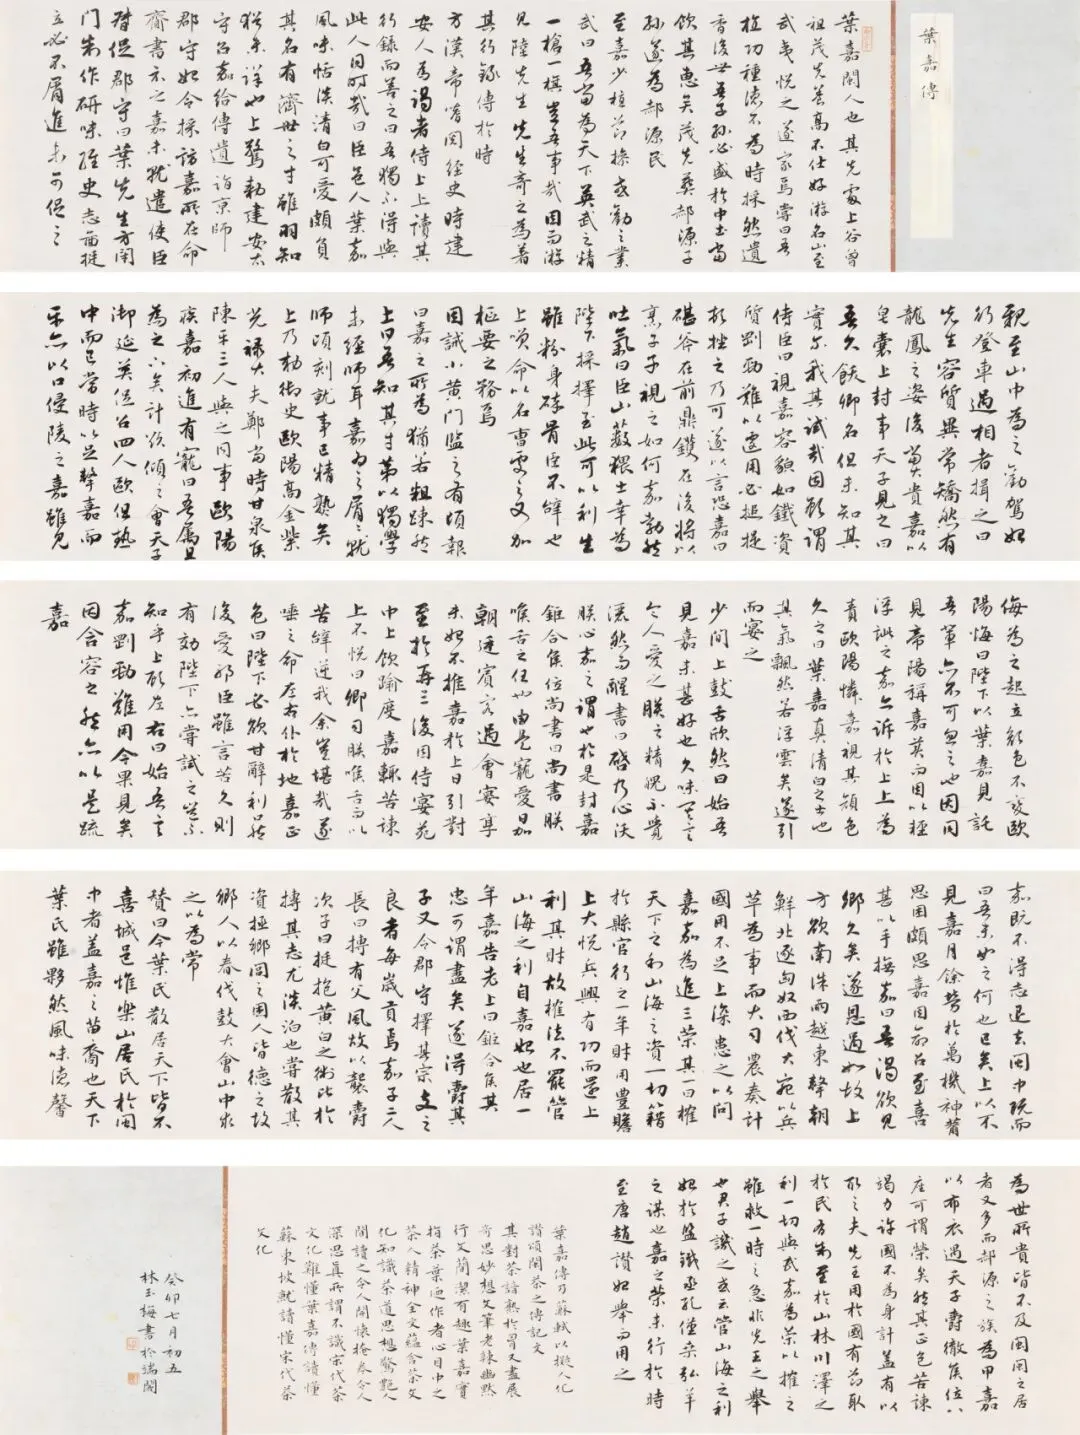 葉嘉傳
葉嘉閩人也其先處上谷曾
祖茂先養高不仕好游名山至
武夷悅之遂家焉嘗曰吾
植功種德不為時採然遺
香後世吾子孫必盛於中土當
飲其惠矣茂先葬郝源子
孫遂為郝源民
至嘉少植節操或勸之業
武曰吾當為天下英武之精
一槍一旗豈吾事哉因而游
見陸先生先生奇之為著
其行錄傳於時
方漢帝嗜閱經史時建
安人為謁者侍上上讀其
行錄而善之曰吾獨不得與
此人同時哉曰臣邑人葉嘉
風味恬淡清白可愛頗負
其名有濟世之才雖羽知
猶未詳也上驚勅建安太
守召嘉給傳遣詣京師
郡守始令採訪嘉所在命
齎書示之嘉未就遣使臣
督促郡守曰葉先生方閉
門制作研味經史志圖挺
立必不屑進未可促之
親至山中為之勸駕始
行登車遇相者揖之曰
先生容質異常矯然有
龍鳳之姿後當大貴嘉以
皂囊上封事天子見之曰
吾久飫卿名但未知其
實爾我其試哉因顧謂
侍臣曰視嘉容貌如鐵資
質剛勁難以遽用必搥提
頓挫之乃可遂以言恐嘉曰
碪斧在前鼎鑊在後將以
烹子子視之如何嘉勃然
吐氣曰臣山藪猥士幸為
陛下採擇至此可以利生
雖粉身碎骨臣不辭也
上笑命以名曹處之又加
樞要之務焉
因誡小黃門監之有頃報
曰嘉之所為猶若粗疎然
上曰吾知其才第以獨學
未經師耳嘉為之屑屑就
師頃刻就事已精熟矣
上乃勅御史歐陽高金紫
光祿大夫鄭當時甘泉侯
陳平三人與之同事歐陽
疾嘉初進有寵曰吾屬且
為之下矣計欲傾之會天子
御延英促召四人歐但熱
中而已當時以足擊嘉而
平亦以口侵陵之嘉雖見
侮為之起立顏色不變歐
陽悔曰陛下以葉嘉見託
吾輩亦不可忽之也因同
見帝陽稱嘉美而因以輕
浮訿之嘉亦訴於上上為
責歐陽憐嘉視其顏色
久之曰葉嘉真清白之士也
其氣飄然若浮雲矣遂引
而宴之
少間上鼓舌欣然曰始吾
見嘉未甚好也久味其言
令人愛之朕之精魄不覺
灑然而醒書曰啓乃心沃
朕心嘉之謂也於是封嘉
鉅合侯位尚書曰尚書朕
喉舌之任也由是寵愛日加
朝廷賓客遇會宴享
未始不推嘉於上日引對
至於再三後因侍宴苑
中上飲踰度嘉輒苦諫
上不悅曰卿司朕喉舌而以
苦辭逆我余豈堪哉遂
唾之命左右仆於地嘉正
色曰陛下必欲甘辭利口然
後愛耶臣雖言苦久則
有効陛下亦嘗試之豈不
知乎上顧左右曰始吾言
嘉剛勁難用今果見矣
因含容之然亦以是疏
嘉
嘉既不得志退去閩中既而
曰吾未如之何也已矣上以不
見嘉月餘勞於萬機神薾
思困頗思嘉因命召至喜
甚以手撫嘉曰吾渴欲見
卿久矣遂恩遇如故上
方欲南誅兩越東擊朝
鮮北逐匈奴西伐大宛以兵
革為事而大司農奏計
國用不足上深患之以問
嘉嘉為進三策其一曰榷
天下之利山海之資一切籍
於縣官行之一年財用豐贍
上大悅兵興有功而還上
利其財故榷法不罷管
山海之利自嘉始也居一
年嘉告老上曰鉅合侯其
忠可謂盡矣遂得爵其
子又令郡守擇其宗支之
良者每歲貢焉嘉子二人
長曰摶有父風故以襲爵
次子曰挺抱黃白之術比於
摶其志尤淡泊也嘗散其
資拯鄉閭之困人皆德之故
鄉人以春伐鼓大會山中求
之以為常
贊曰今葉氏散居天下皆不
喜城邑惟樂山居氏於閩
中者蓋嘉之苗裔也天下
葉氏雖夥然風味德馨
為世所貴皆不及閩閩之居
者又多而郝源之族為甲嘉
以布衣遇天子爵徹侯位八
座可謂榮矣然其正色苦諫
竭力許國不為身計蓋有以
取之夫先王用於國有節取
於民有制至於山林川澤之
利一切與民嘉為策以榷之
雖救一時之急非先王之舉
也君子譏之或云管山海之利
始於鹽鐵丞孔僅桑弘羊
之謀也嘉之策未行於時
至唐趙讚始舉而用之
葉嘉傳乃蘇軾以擬人化
讚頌閩茶之傳記文
其對茶諳熟於胸又盡展
奇思妙想文筆老辣幽默
行文簡潔有趣葉嘉實
指茶葉亦作者心目中之
茶人精神全文蘊含茶文
化知識茶道思想驚艷人
間讀之令人開懷掩卷令人
深思真所謂不識宋代茶
文化難懂葉嘉傳讀懂
蘇東坡就讀懂宋代茶
文化
癸卯七月初五
林玉梅書於瑞閣